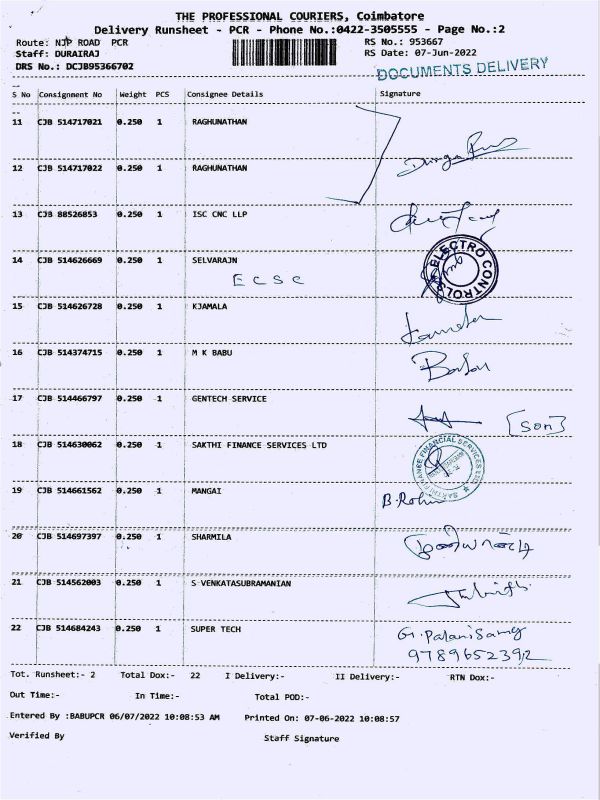 THE PROFESSIONAL COURIERS, Coimbatore
Delivery Runsheet - PCR - Phone No.:0422-3505555 - Page No.:2
Route: NJP ROAD PCR RS No.: 953667
Staff: DURAIRAJ RS Date: 07-Jun-2022
DRS No.: DCJB95366702
DOCUMENTS DELIVERY
S No Consignment No Weight PCS Consignee Details Signature
11 CJB 514717021 0.250 1 RAGHUNATHAN
12 CJB 514717022 0.250 1 RAGHUNATHAN
13 CJB 88526853 0.250 1 ISC CNC LLP
14 CJB 514626669 0.250 1 SELVARAJN
ECSC
ELECTRO CONTROLS
15 CJB 514626728 0.250 1 KJAMALA
16 CJB 514374715 0.250 1 M K BABU
Babu
17 CJB 514466797 0.250 1 GENTECH SERVICE
[Son]
18 CJB 514630062 0.250 1 SAKTHI FINANCE SERVICES LTD
SAKTHI FINANCE FINANCIAL SERVICES LTD
19 CJB 514661562 0.250 1 MANGAI
20 CJB 514697397 0.250 1 SHARMILA
21 CJB 514562003 0.250 1 S VENKATASUBRAMANIAN
22 CJB 514684243 0.250 1 SUPER TECH
G. Palanisamy
9789652392
Tot. Runsheet:- 2 Total Dox:- 22 I Delivery:- II Delivery:- RTN Dox:-
Out Time:- In Time:- Total POD:-
Entered By :BABUPCR 06/07/2022 10:08:53 AM Printed On: 07-06-2022 10:08:57
Verified By Staff Signature